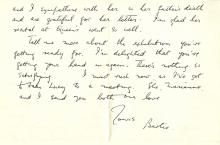 and I sympathise with her in her father's death
and are grateful for her letter. I'm glad her
recital at Queens went so well.
Tell me more about the exhibition you're
getting ready for. I'm delighted that you're
getting your hand in again. There's nothing so
satisfying. I must rush now as I've got
to a meeting. She, Marianne,
and I send you both our love
Yours